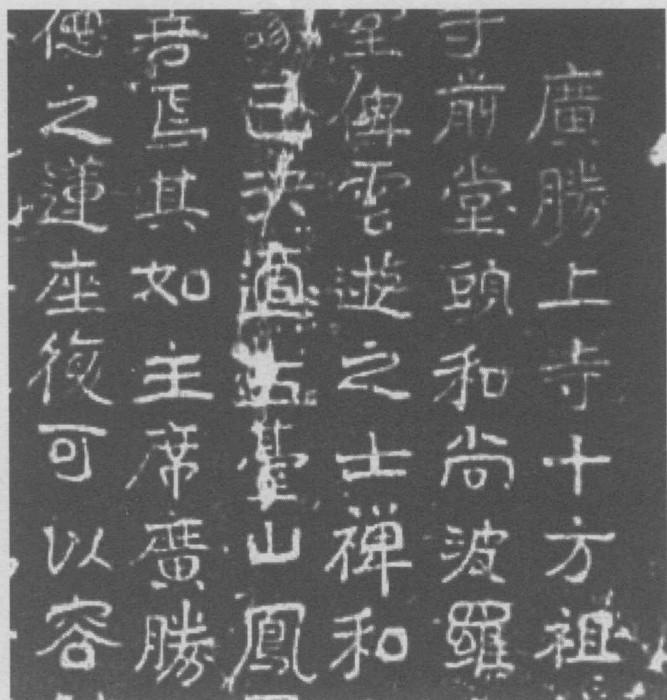 廣勝上寺十方祖
寺前堂頭和尚波羅
俾雲遊之士禪和
已決適五臺山鳳
音焉其如主席廣勝
德之蓮座後可以容